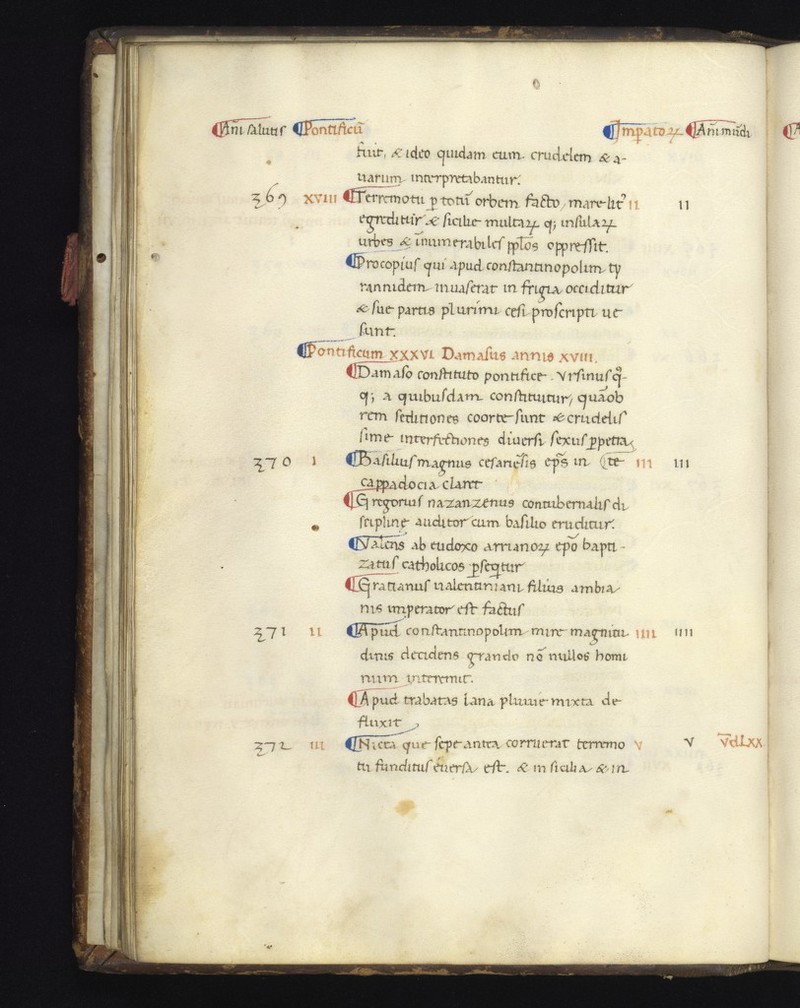 Añi salutis Pontificũ Impatoꝝ Añi mũdi
fuit. & ideo quidam eum crudelem & a-
uarum interpretabantur.
369 XVIII Terremotu ꝑ totũ orbem facto, mare lit᾽ II II
egreditur & sicilie multaꝝ q; insulaꝝ
urbes & inumerabiles pplos oppressit.
Procopius qui apud constantinopolim ty
rannidem inuaserat in frigia occiditur
& sue partis plurimi cesi proscripti ue
sunt.
Pontificum XXXVI Damasus annis XVIII.
Damaso constituto pontifice Vrsinus q̊-
q; a quibusdam constituitur, quãob
rem seditiones coorte sunt & crudelis
sime interfectiones diuersi sexus ꝑpetra
370 I Basilius magnus cesariẽsis eps̃ in (te III III
cappadocia claret
Gregorius nazanzenus contubernalis di
scipline auditor cum basilio eruditur.
Valens ab eudoxo arrianoꝝ epõ bapti-
zatus catholicos ꝑseqtur
Gratianus ualentiniani filius ambia
nis imperator est factus
371 II Apud constantinopolim mire magnitu IIII IIII
dinis decidens grando nõ nullos homi
num interemit.
Apud trabatas lana pluuie mixta de
fluxit
372 III Nicea que sepe antea corruerat terremo V V VdLXX
tu funditus euersa est. & in sicilia & in